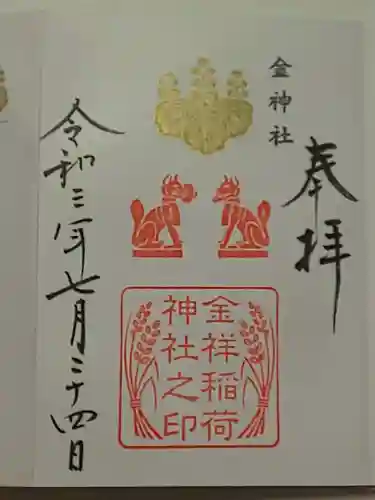 金神社
奉拝
金祥稲荷
神社之印
令和三年七月二十四日